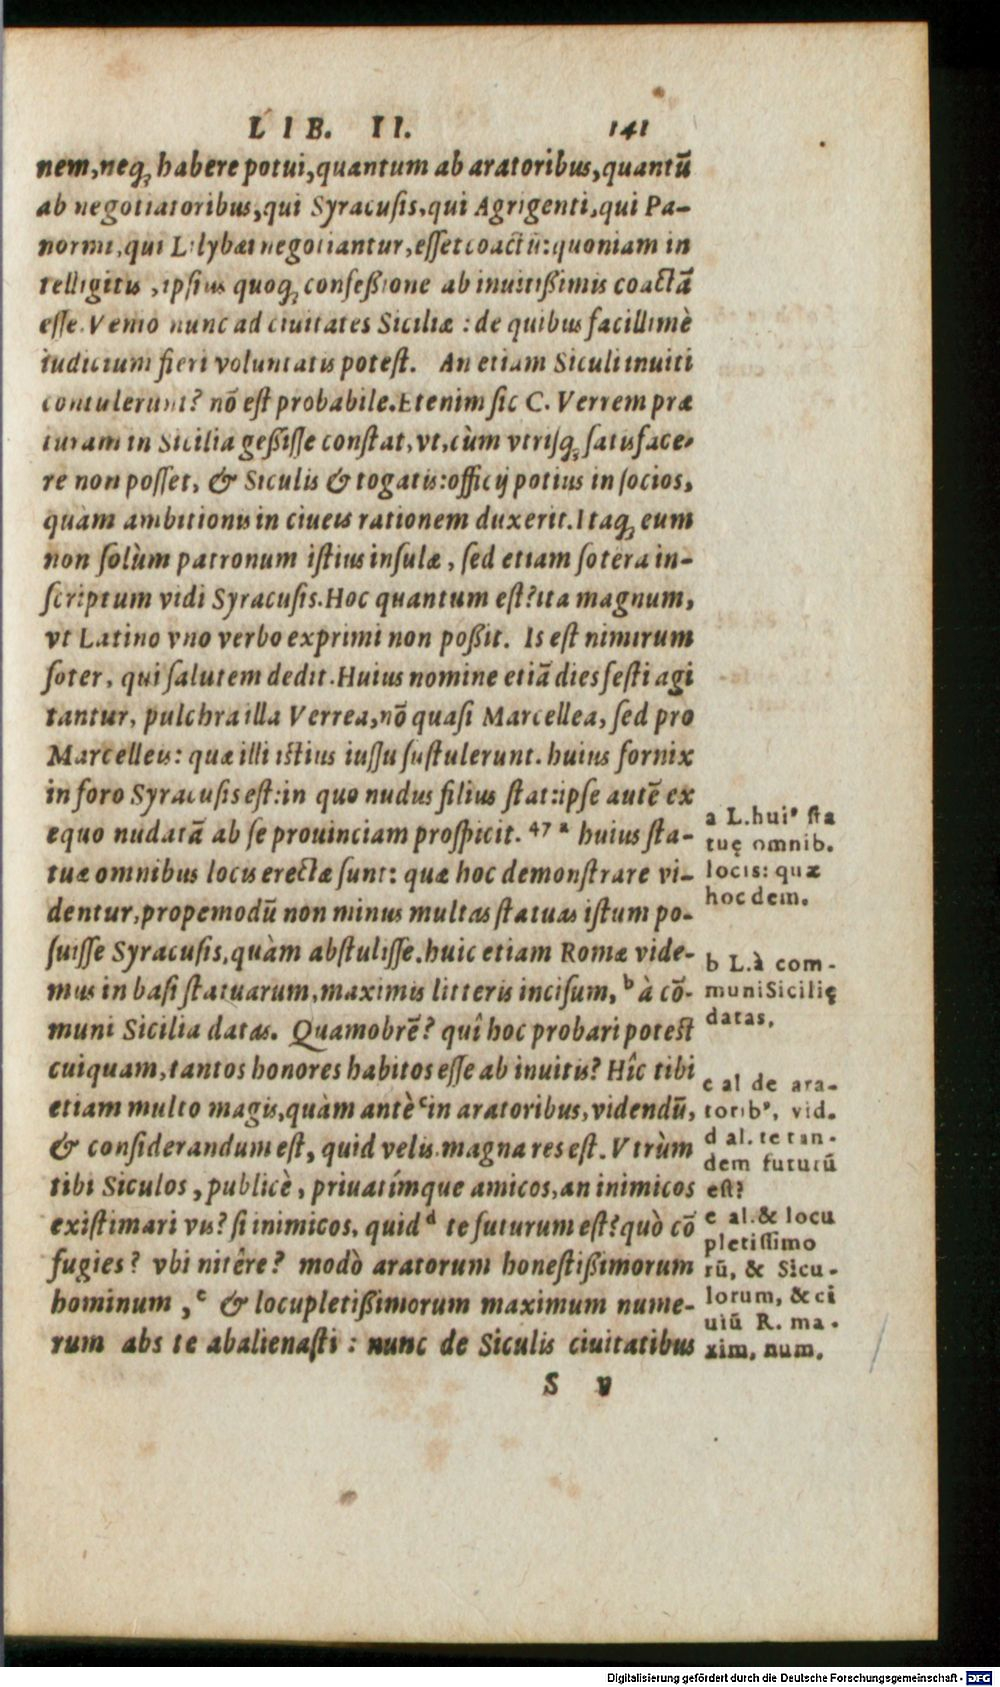 LIB. II. 141
nem,neq́; habere potui,quantum ab aratoribus,quantū
ab negotiatoribus,qui Syracusis,qui Agrigenti,qui Pa-
normi,qui Lilybæi negotiantur,esset coactū:quoniam in
telligitis ,ipsius quoq́; confeßione ab inuitißimis coactā
esse.Venio nunc ad ciuitates Siciliæ :de quibus facillimè
iudicium fieri voluntatis potest. An etiam Siculi inuiti
contulerunt? nō est probabile.Etenim sic C. Verrem præ
turam in Sicilia geßisse constat,vt,cùm vtrisq́; satisface-
re non posset, & Siculis & togatis:officij potius in socios,
quàm ambitionis in ciueis rationem duxerit.Itaq́; eum
non solùm patronum istius insulæ , sed etiam sotera in-
scriptum vidi Syracusis.Hoc quantum est?ita magnum,
vt Latino vno verbo exprimi non poßit. Is est nimirum
soter, qui salutem dedit.Huius nomine etiā dies festi agi
tantur, pulchra illa Verrea,nō quasi Marcellea, sed pro
Marcelleis: quæ illi istius iussu sustulerunt.huius fornix
in foro Syracusis est:in quo nudus filius stat:ipse autē ex
equo nudatā ab se prouinciam prospicit. 47 a huius sta-
tuæ omnibus locis erectæ sunt: quæ hoc demonstrare vi-
dentur,propemodū non minus multas statuas istum po-
suisse Syracusis,quàm abstulisse.huic etiam Romæ vide-
mus in basi statuarum,maximis litteris incisum, b à cō-
muni Sicilia datas. Quamobrē? quî hoc probari potest
cuiquam,tantos honores habitos esse ab inuitis? Hîc tibi
etiam multo magis,quàm antè c in aratoribus,videndū,
& considerandum est, quid velis.magna res est. Vtrùm
tibi Siculos ,publicè, priuatímque amicos,an inimicos
existimari vis? si inimicos, quid d te futurum est?quò cō
fugies? vbi nitêre? modò aratorum honestißimorum
hominum , e & locupletißimorum maximum nume-
rum abs te abalienasti : nunc de Siculis ciuitatibus
S v
a L.hui⁹ sta
tuę omnib.
locis: quæ
hoc dem.
b L.à com-
muni Sicilię
datas.
c al de ara-
torib⁹, vid.
d al. te tan-
dem futurū
est?
e al.& locu
pletissimo
rū, & Sicu-
lorum, & ci
uiū R. ma-
xim, num.
Digitalisierung gefördert durch die Deutsche Forschungsgemeinschaft - DFG